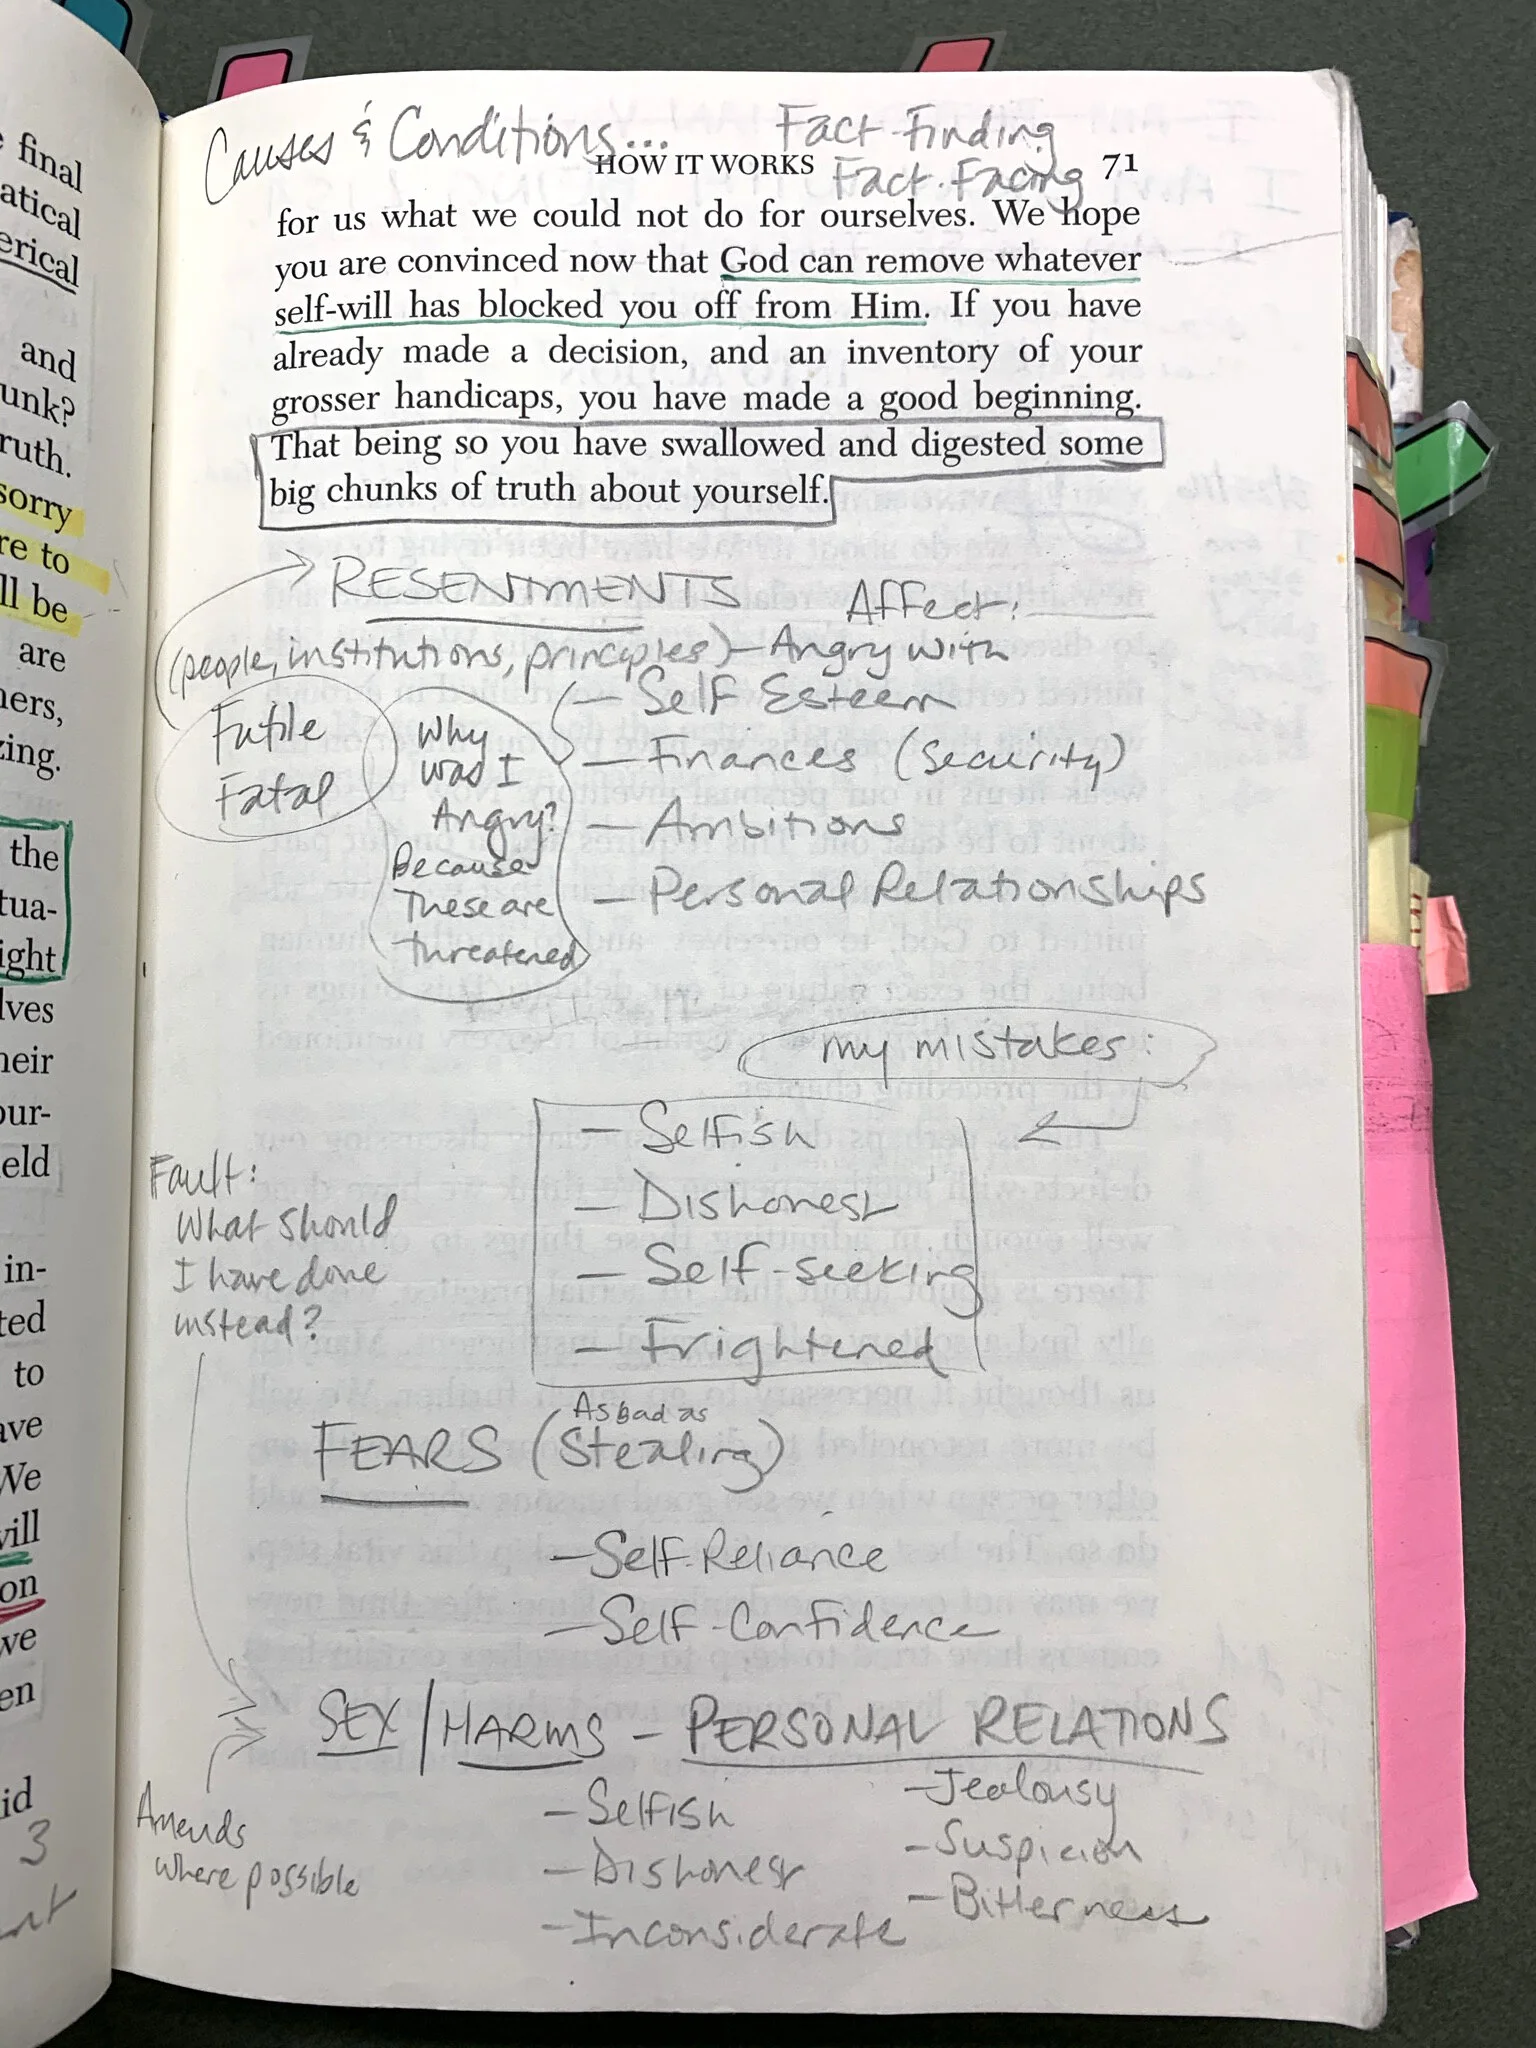 final
atical
erical
and
unk?
ruth.
sorry
re to
ll be
are
ners,
zing.
the
tua-
ight
lves
heir
our-
eld
in-
ted
to
ave
We
will
on
we
en
id
3
Causes & Conditions...
Fact-Finding
Fact-Facing
HOW IT WORKS 71
for us what we could not do for ourselves. We hope
you are convinced now that God can remove whatever
self-will has blocked you off from Him. If you have
already made a decision, and an inventory of your
grosser handicaps, you have made a good beginning.
That being so you have swallowed and digested some
big chunks of truth about yourself.
RESENTMENTS
Affect:
(people, institutions, principles) - Angry with
Futile
Fatal
Why
was I
Angry?
Because
These are
threatened
- Self Esteem
- Finances (Security)
- Ambitions
- Personal Relationships
my mistakes:
- Selfish
- Dishonest
- Self-seeking
- Frightened
Fault:
What should
I have done
instead?
As bad as
FEARS (Stealing)
- Self-Reliance
- Self-Confidence
SEX/HARMS - PERSONAL RELATIONS
- Selfish
- Dishonest
- Inconsiderate
- Jealousy
- Suspicion
- Bitterness
Amends
where possible